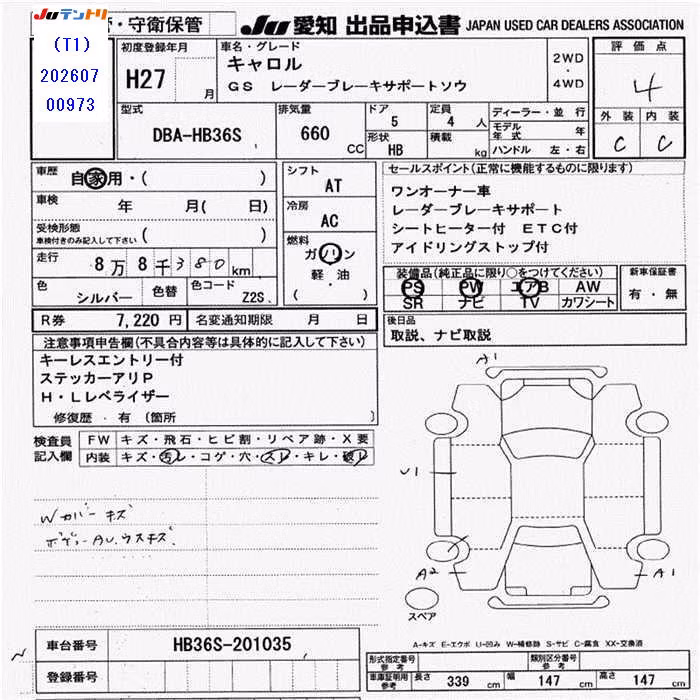 Juテントリ
・守衛保管
JU 愛知 出品申込書 JAPAN USED CAR DEALERS ASSOCIATION
(T1)
202607
00973
初度登録年月
H27 月
車名・グレード
キャロル
GS レーダーブレーキサポートソウ
2WD
・
4WD
評価点
4
外装 内装
C C
型式
DBA-HB36S
排気量
660 CC
ドア
5
定員
4 人
形状
HB
積載
kg
ディーラー・並行
モデル年式 年
ハンドル 左・右
車歴
自家用・( )
車検 年 月( 日)
受検形態
車検付きのみ記入して下さい ( )
走行 8万8千380km
色 シルバー 色替 色コード Z2S
シフト
AT
冷房
AC
燃料
ガソリン
軽・油
( )
セールスポイント(正常に機能するものに限ります)
ワンオーナー車
レーダーブレーキサポート
シートヒーター付 ETC付
アイドリングストップ付
装備品(純正品に限り○をつけてください)
PS PW エアB AW
SR ナビ TV カワシート
新車保証書
有・無
R券 7,220円 名変通知期限 月 日
後日品
取説、ナビ取説
注意事項申告欄(不具合内容等は具体的に記入して下さい)
キーレスエントリー付
ステッカーアリP
H・Lレベライザー
修復歴・有(箇所 )
検査員記入欄
FW キズ・飛石・ヒビ割・リペア跡・X要
内装 キズ・汚レ・コゲ・穴・スレ・キレ・破レ
Wカバーキズ
ボディーAU.ウスキズ.
A1
U1
A2
A1
スペア
車台番号 HB36S-201035
登録番号
A-キズ E-エクボ U-凹み W-補修跡 S-サビ C-腐食 XX-交換済
形式指定番号 参考
類別区分番号 参考
車庫証明用 参考 長さ 339 cm 幅 147 cm 高さ 147 cm